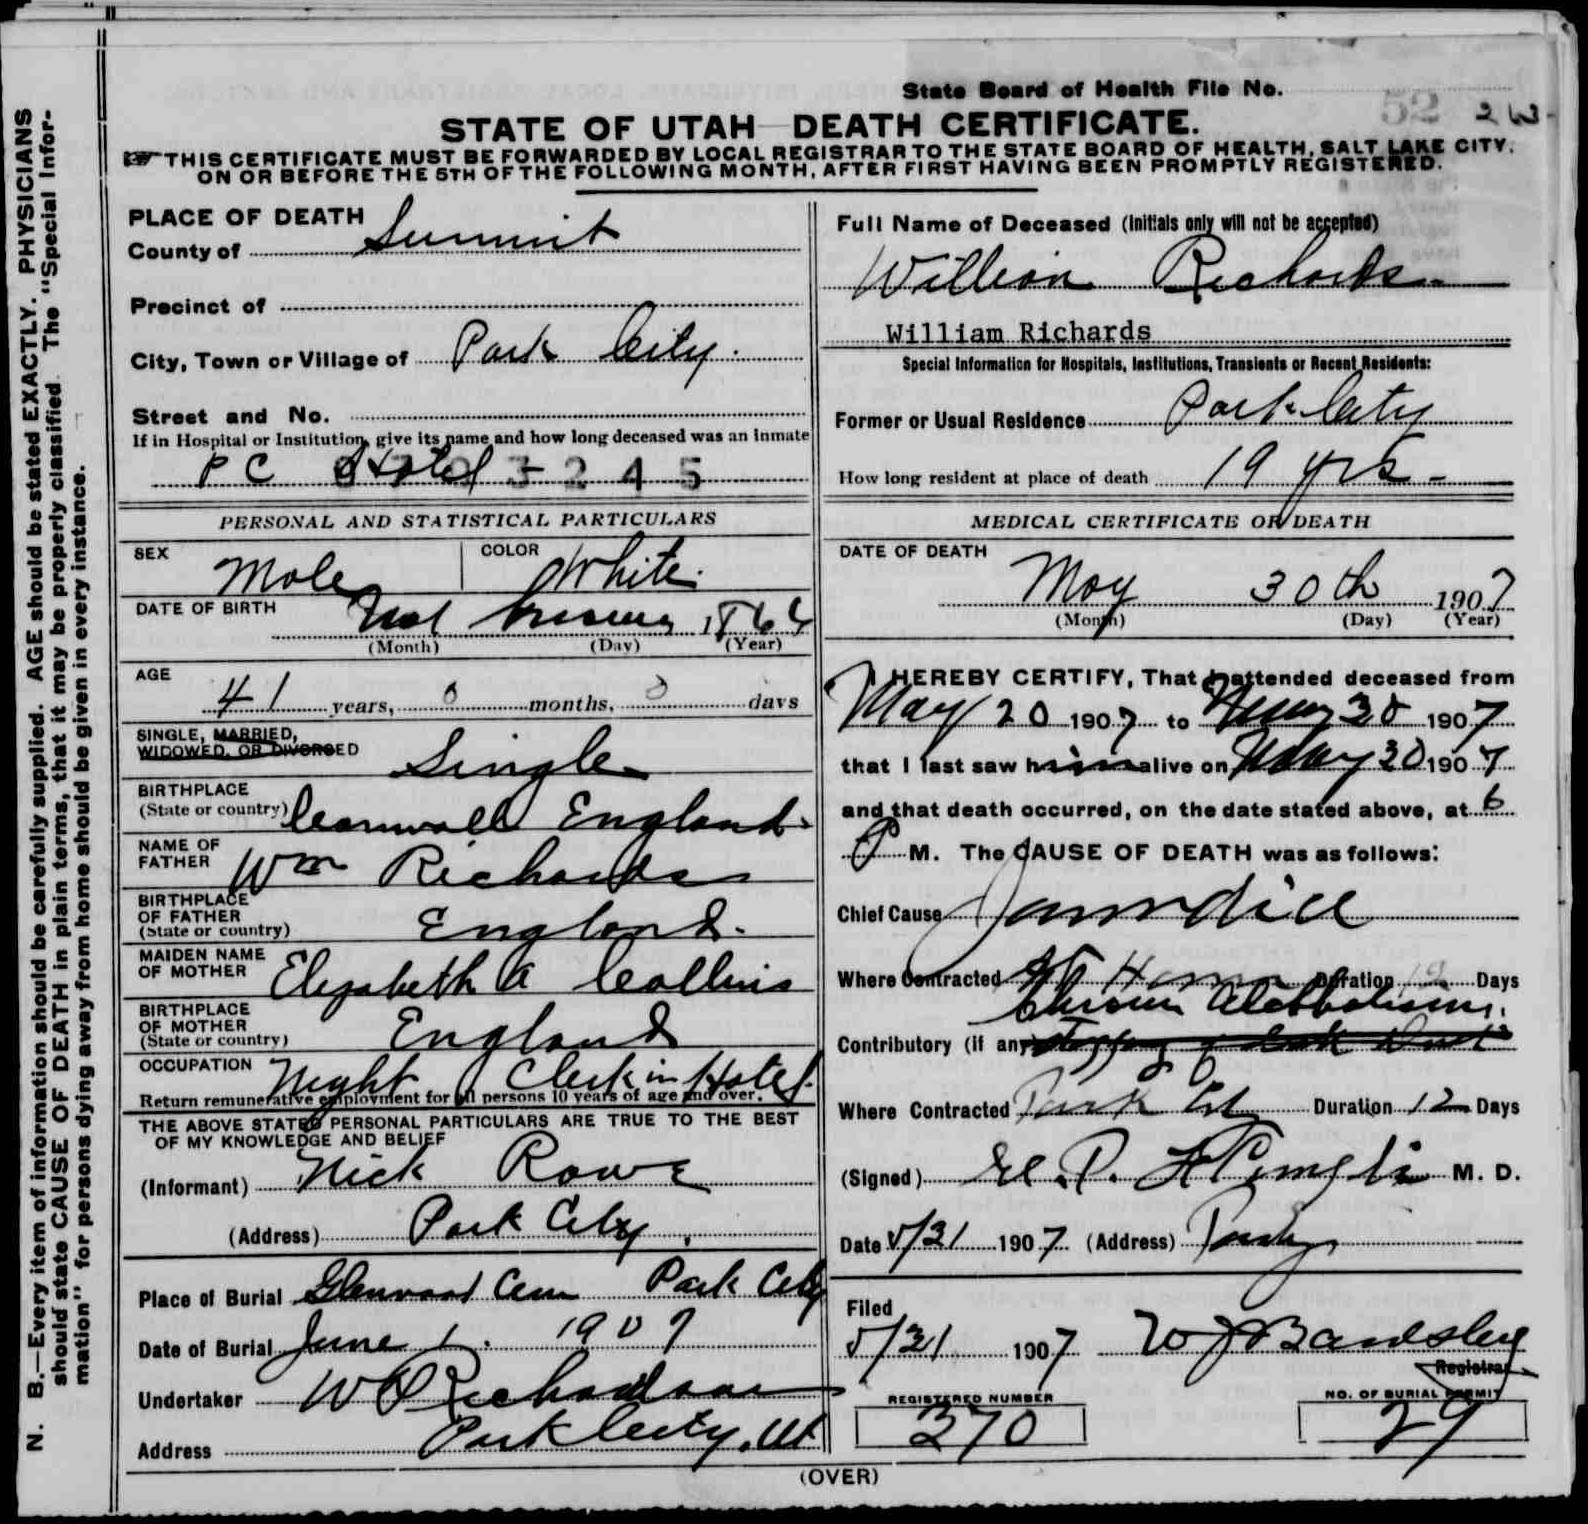 N. B.—Every item of information should be carefully supplied. AGE should be stated EXACTLY. PHYSICIANS
should state CAUSE OF DEATH in plain terms, that it may be properly classified. The "Special Infor-
mation" for persons dying away from home should be given in every instance.
State Board of Health File No. 52
STATE OF UTAH DEATH CERTIFICATE.
THIS CERTIFICATE MUST BE FORWARDED BY LOCAL REGISTRAR TO THE STATE BOARD OF HEALTH, SALT LAKE CITY,
ON OR BEFORE THE 5TH OF THE FOLLOWING MONTH, AFTER FIRST HAVING BEEN PROMPTLY REGISTERED.
PLACE OF DEATH
County of Summit
Precinct of
City, Town or Village of Park City.
Street and No.
If in Hospital or Institution, give its name and how long deceased was an inmate
P C Hotel - 3 2 4 5
PERSONAL AND STATISTICAL PARTICULARS
SEX Male COLOR White.
DATE OF BIRTH Not known 1866
(Month) (Day) (Year)
AGE
41 years, 0 months, 0 days
SINGLE, MARRIED,
WIDOWED, OR DIVORCED Single
BIRTHPLACE
(State or country) Cornwall England.
NAME OF
FATHER Wm Richards
BIRTHPLACE
OF FATHER
(State or country) England.
MAIDEN NAME
OF MOTHER Elizabeth A Collins
BIRTHPLACE
OF MOTHER
(State or country) England
OCCUPATION Night Clerk in Hotel.
Return remunerative employment for all persons 10 years of age and over.
THE ABOVE STATED PERSONAL PARTICULARS ARE TRUE TO THE BEST
OF MY KNOWLEDGE AND BELIEF
(Informant) Nick Rowe
(Address) Park City.
Place of Burial Glenwood Cem Park City
Date of Burial June 1. 1907
Undertaker W Richardson
Address Park City, Ut
Full Name of Deceased (Initials only will not be accepted)
William Richards
William Richards
Special Information for Hospitals, Institutions, Transients or Recent Residents:
Former or Usual Residence Park City
How long resident at place of death 19 yrs -
MEDICAL CERTIFICATE OF DEATH
DATE OF DEATH
May 30th 1907
(Month) (Day) (Year)
I HEREBY CERTIFY, That I attended deceased from
May 20 1907 to May 30 1907
that I last saw him alive on May 30 1907
and that death occurred, on the date stated above, at 6
P M. The CAUSE OF DEATH was as follows:
Chief Cause Jaundice
Where Contracted At Home Duration 12 Days
Chronic Alcoholism.
Contributory (if any)
Where Contracted Park City Duration 12 Days
(Signed) M. D.
Date 5/31 1907 (Address)
Filed
5/31 1907 W J Bardsley
Registrar
REGISTERED NUMBER
370
NO. OF BURIAL PERMIT
29
(OVER)